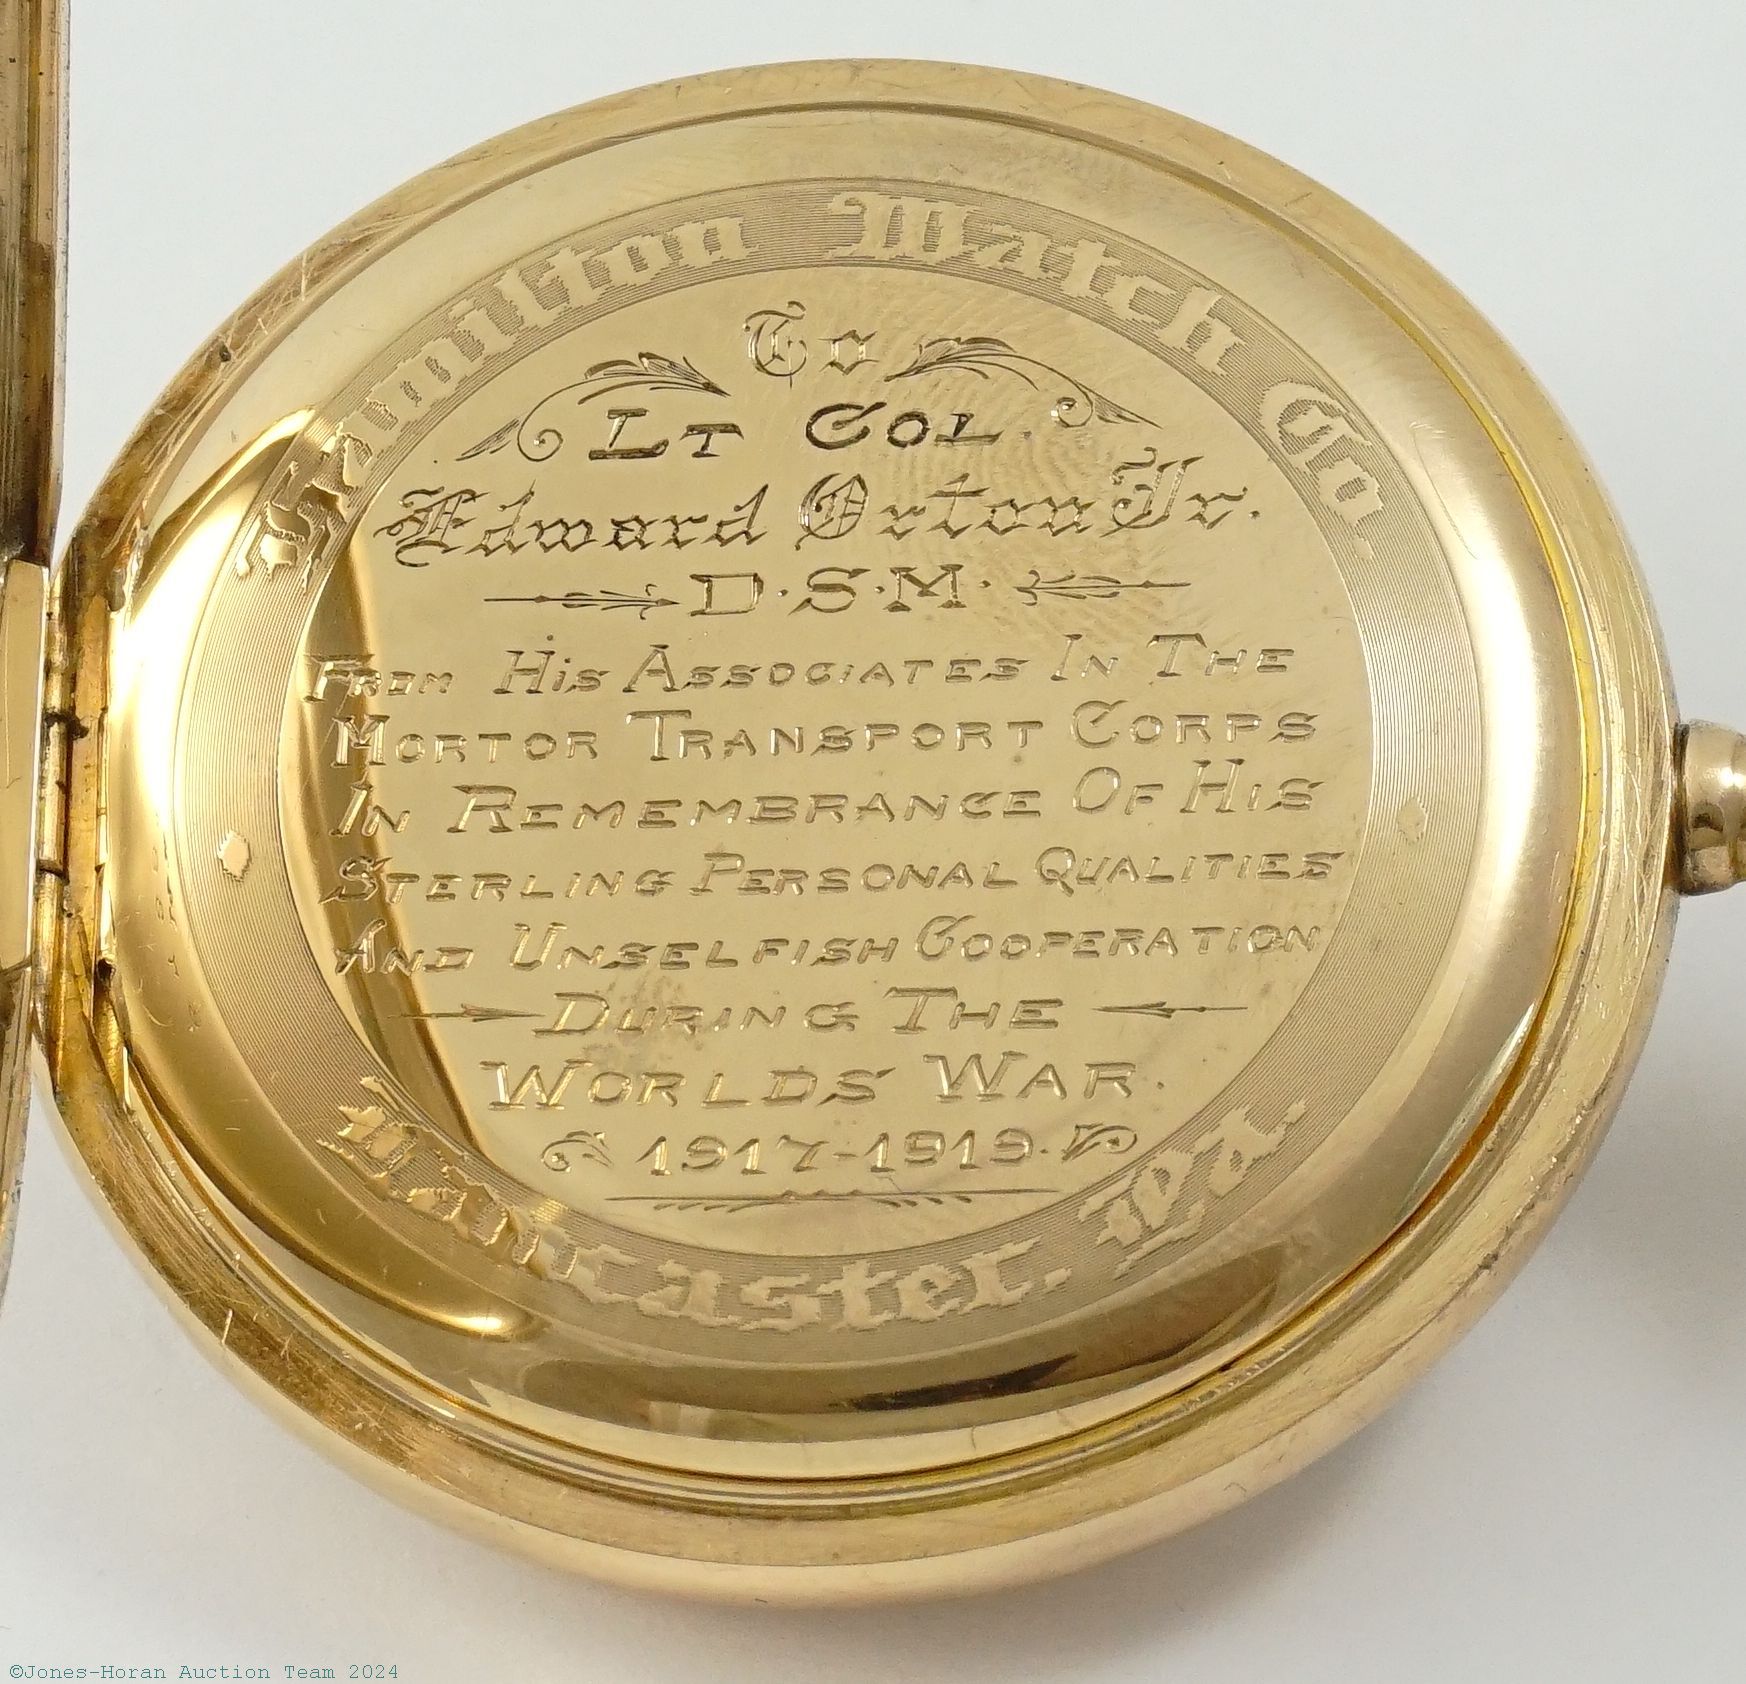 Hamilton Watch Co.
To
Lt Col.
Edward Orton Jr.
D.S.M.
From His Associates In The
Mortor Transport Corps
In Remembrance Of His
Sterling Personal Qualities
And Unselfish Cooperation
During The
Worlds War.
1917-1919.
Lancaster, Pa.
©Jones-Horan Auction Team 2024